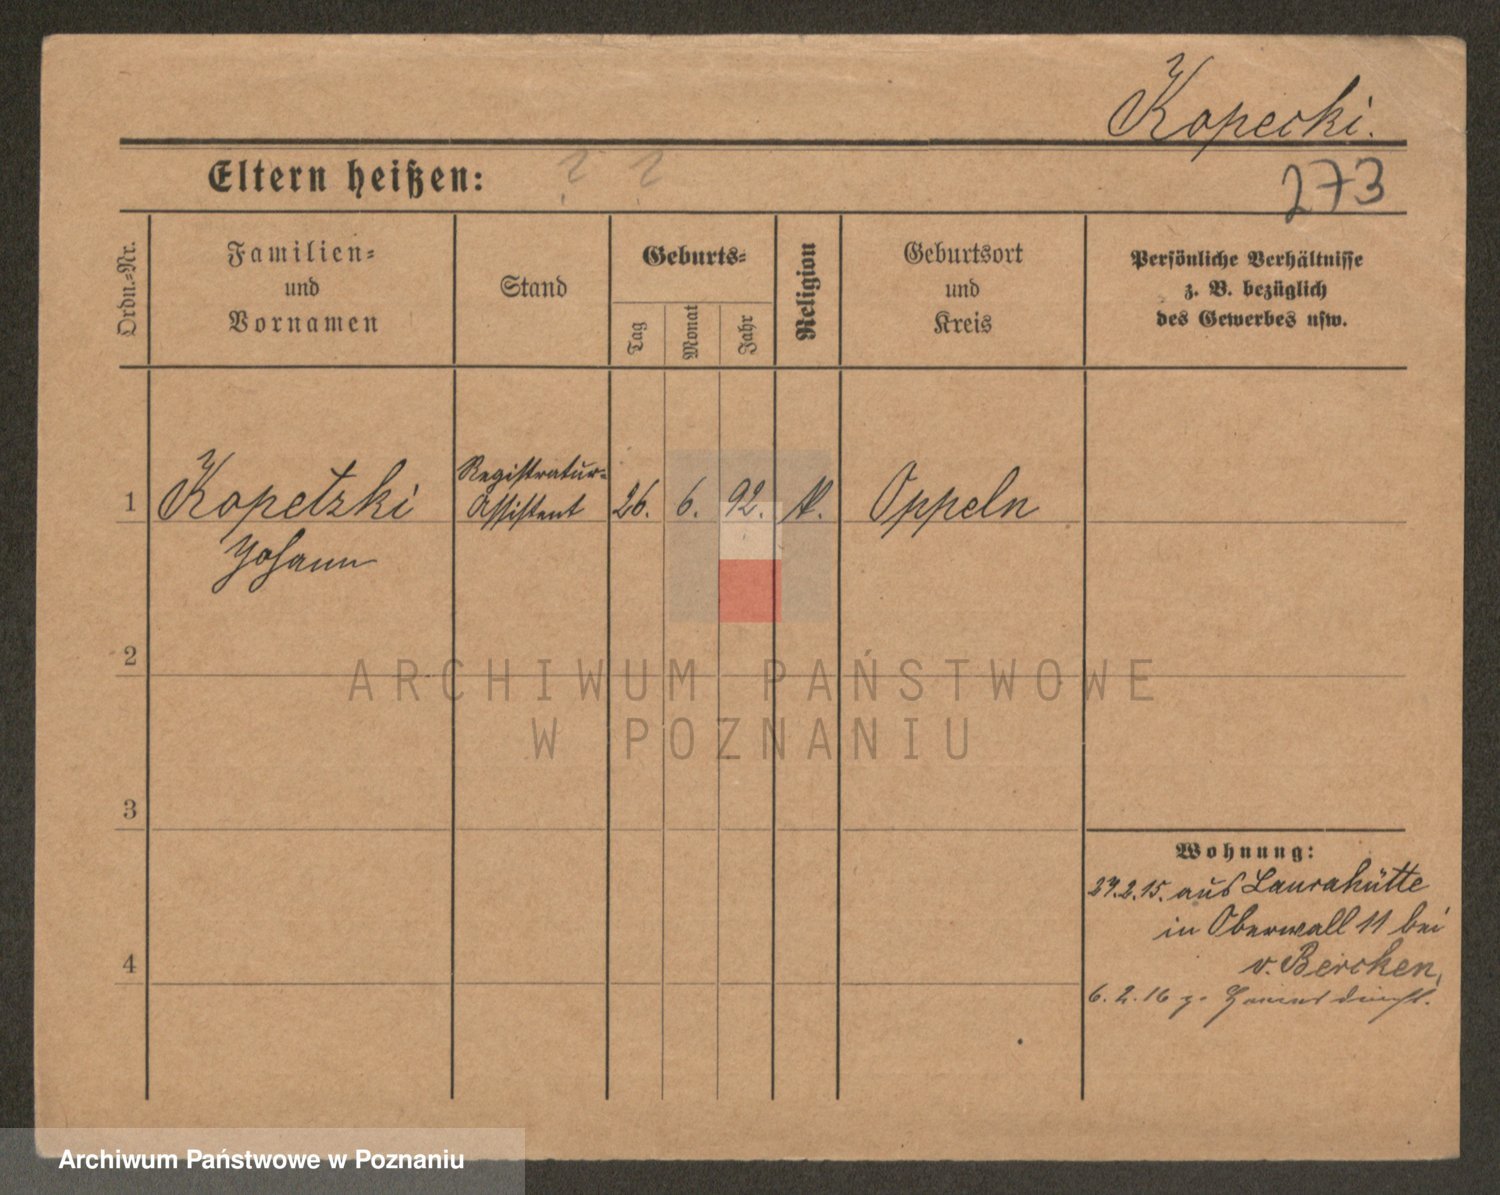 Kopecki.
Eltern heißen: ? ?
273
Ordn.-Nr.
Familien-
und
Vornamen
Stand
Geburts-
Tag
Monat
Jahr
Religion
Geburtsort
und
Kreis
Persönliche Verhältnisse
z. B. bezüglich
des Gewerbes usw.
1
Kopetzki
Johann
Registratur-
Assistent
26.
6.
92.
Oppeln
2
ARCHIWUM PAŃSTWOWE
W POZNANIU
3
4
Wohnung:
27.2.15. aus Laurahütte
in Oberwall 11 bei
v. Bercken,
6.2.16 z.
Archiwum Państwowe w Poznaniu